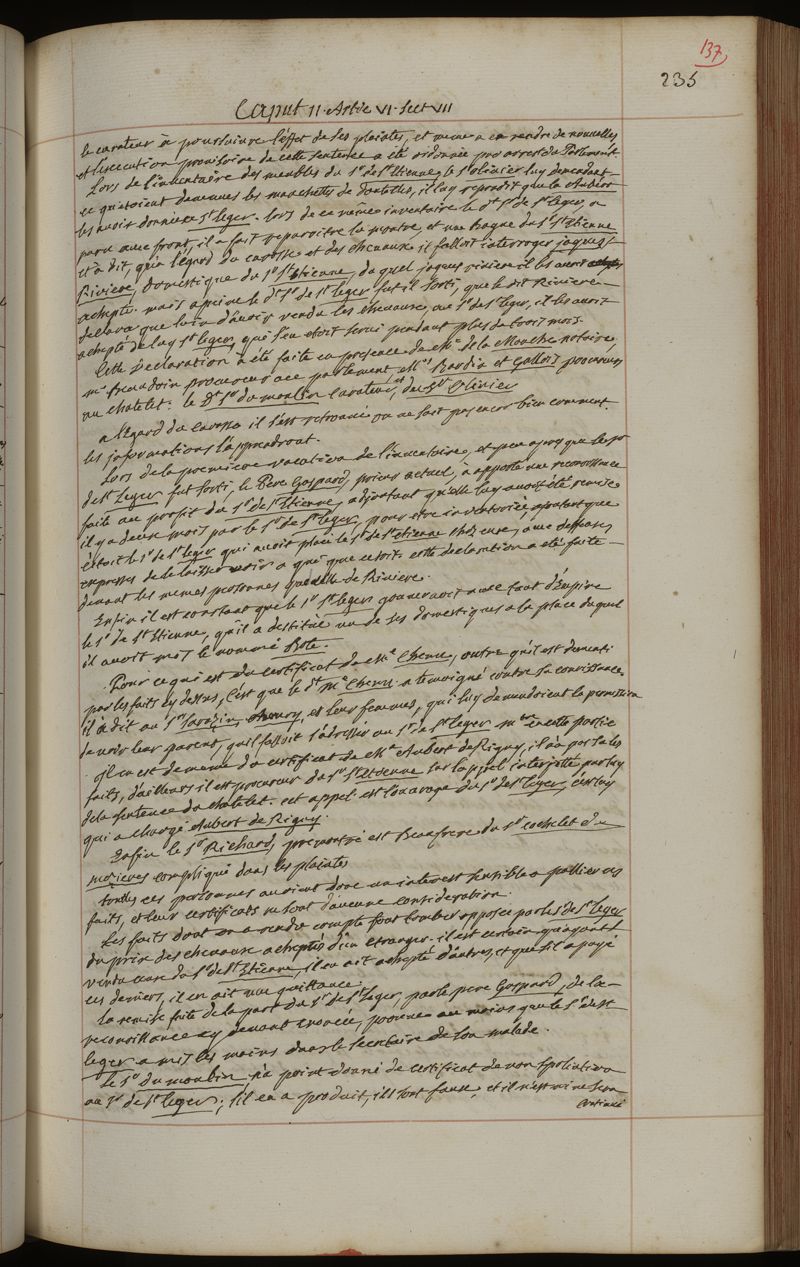 137
235
Caput II. Artic VI. Sect VII
le curateur à poursuivre l'effet de ses plaintes, et meme a en rendre de nouvelles
et l'execution provisoire de cette sentence a été ordonnée par arrest du Parlement
Lors de l'inventaire des meubles du Sr. de St. Etienne, le Sr. Olivier luy demandant
ce qu'etoient devenues les manchettes de dentelles, il luy repondit que la Aubert
les avoit données a St. Leger. lors de ce même inventaire le dt. Sr. de St. Leger, a
paru avec front, il a fait reparoitre la montre, et une bague du Sr. St. Etienne
et à dit, qu'à l'égard du carosse et des chevaux il falloit interroger jaques
Riviere, domestique du Sr. St. Etienne, du quel jaques riviere il les avoit
achepté. mais a peine le dt. Sr. de St. Leger fut il sorti, que le dit Riviere
declara que loin d'avoir vendu les chevaux, au Sr. de St. Leger, il les avoit
achepté de luy St. Leger, qui s'en etoit servi pendant plus de trois mois.
Cette Declaration à été faite en presence de Me. de la Manche notaire,
Me. Beaudoin procureur au parlement Mrs. Baudin et Gallois procureurs
au chatelet. le Dt. Sr. du moulin curateur, et du Sr. Olivier
a l'Egard du carosse il s'est retrouvé on ne sait pas encor bien comment.
les informations l'apprendront.
Lors de la premiere vacation de l'inventaire, et peu apres que le Sr.
de St. Leger fut sorti, le Pere Gaspard, prieur actuel, à apporté une reconoissance
faite au profit du Sr. de St. Etienne, adjoutant qu'elle luy avoit été remise
il y a deux mois par le Sr. de St. Leger, pour etre inventoriée, ajoutant que
c'etoit le Sr. de St. Leger qui avoit placé le Sr. de St. Etienne chez eux, avec deffenses
expresses de le laisser voir a qui que ce soit. cette declaration a été faite
devant les memes personnes que celle de Riviere.
Enfin il est constant que le Sr. St. Leger gouvernoit avec tant d'Empire
le Sr. de St. Etienne, qu'il a destitué un de ses domestiques a la place duquel
il avoit mis le nommé Bote.
Pour ce qui est du certificat de Me. Chenu, outre qu'il est dementi
par les faits cy dessus, c'est que le dt. Me. Chenu a temoigné contre sa connoissance
il à dit au Srs. Sarazin, et leurs femmes, qui luy demandoient la permission
de voir leur parent, qu'il falloit s'adresser au Sr. de St. Leger en cette partie
Il en est de meme du certificat de Me. Aubert de Rigny, il n'a par sa les
faits, d'ailleurs il est procureur du Sr. St. Etienne sur l'appel interjetté par luy
de la sentence du chatelet. cet appel est l'ouvrage du Sr. de St. Leger, c'est luy
qui a chargé Aubert de Rigny.
Enfin le Sr. Richard, premontré est Beaufrere du Sr. cochelet du
mezieres compliqué dans les plaintes
toutes ces personnes auroient donc un interest sensible a pallier ces
faits, et leur certificats ne sont d'aucune consideration.
Les faits dont on a rendu compte font tomber opposée par les de St. Leger
du prix des chevaux acheptés d'un etranger. il est certain qu'ayant
vendu ceux du Sr. de St. Etienne, il en ait achepté d'autres, et que s'il a payé
ces derniers, il en ait une quittance.
La remise faite de la part du Sr. de St. Leger, par le pere Gaspard, de la
reconoissance cy devant enoncée, prouve au moins que le Sr. de St.
Leger a mis les mains dans le secretaire de son malade.
Le Sr. du moulin n'a point donné de certificat de non spoliation
au Sr. de St. Leger; s'il en a produit, ils sont faux, et il n'est ni ne sera
continué